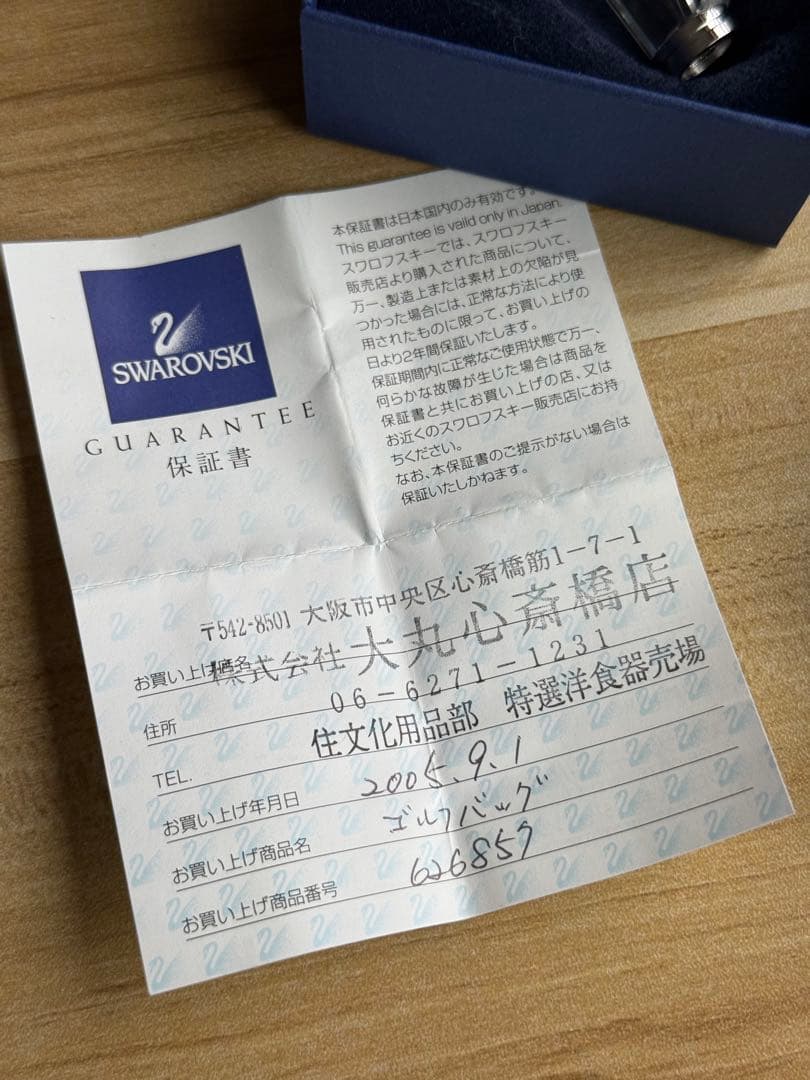 SWAROVSKI
GUARANTEE
保証書
本保証書は日本国内のみ有効です。
This guarantee is vaild only in Japan.
スワロフスキーでは、スワロフスキー
販売店より購入された商品について、
万一、製造上または素材上の欠陥が見
つかった場合には、正常な方法により使
用されたものに限って、お買い上げの
日より2年間保証いたします。
保証期間内に正常なご使用状態で万一、
何らかな故障が生じた場合は商品を
保証書と共にお買い上げの店、又は
お近くのスワロフスキー販売店にお持
ちください。
なお、本保証書のご提示がない場合は
保証いたしかねます。
〒542-8501 大阪市中央区心斎橋筋1-7-1
お買い上げ店名 株式会社 大丸心斎橋店
住所 06-6271-1231
TEL. 住文化用品部 特選洋食器売場
お買い上げ年月日 2005.9.1
お買い上げ商品名 ゴルフバッグ
お買い上げ商品番号 626857